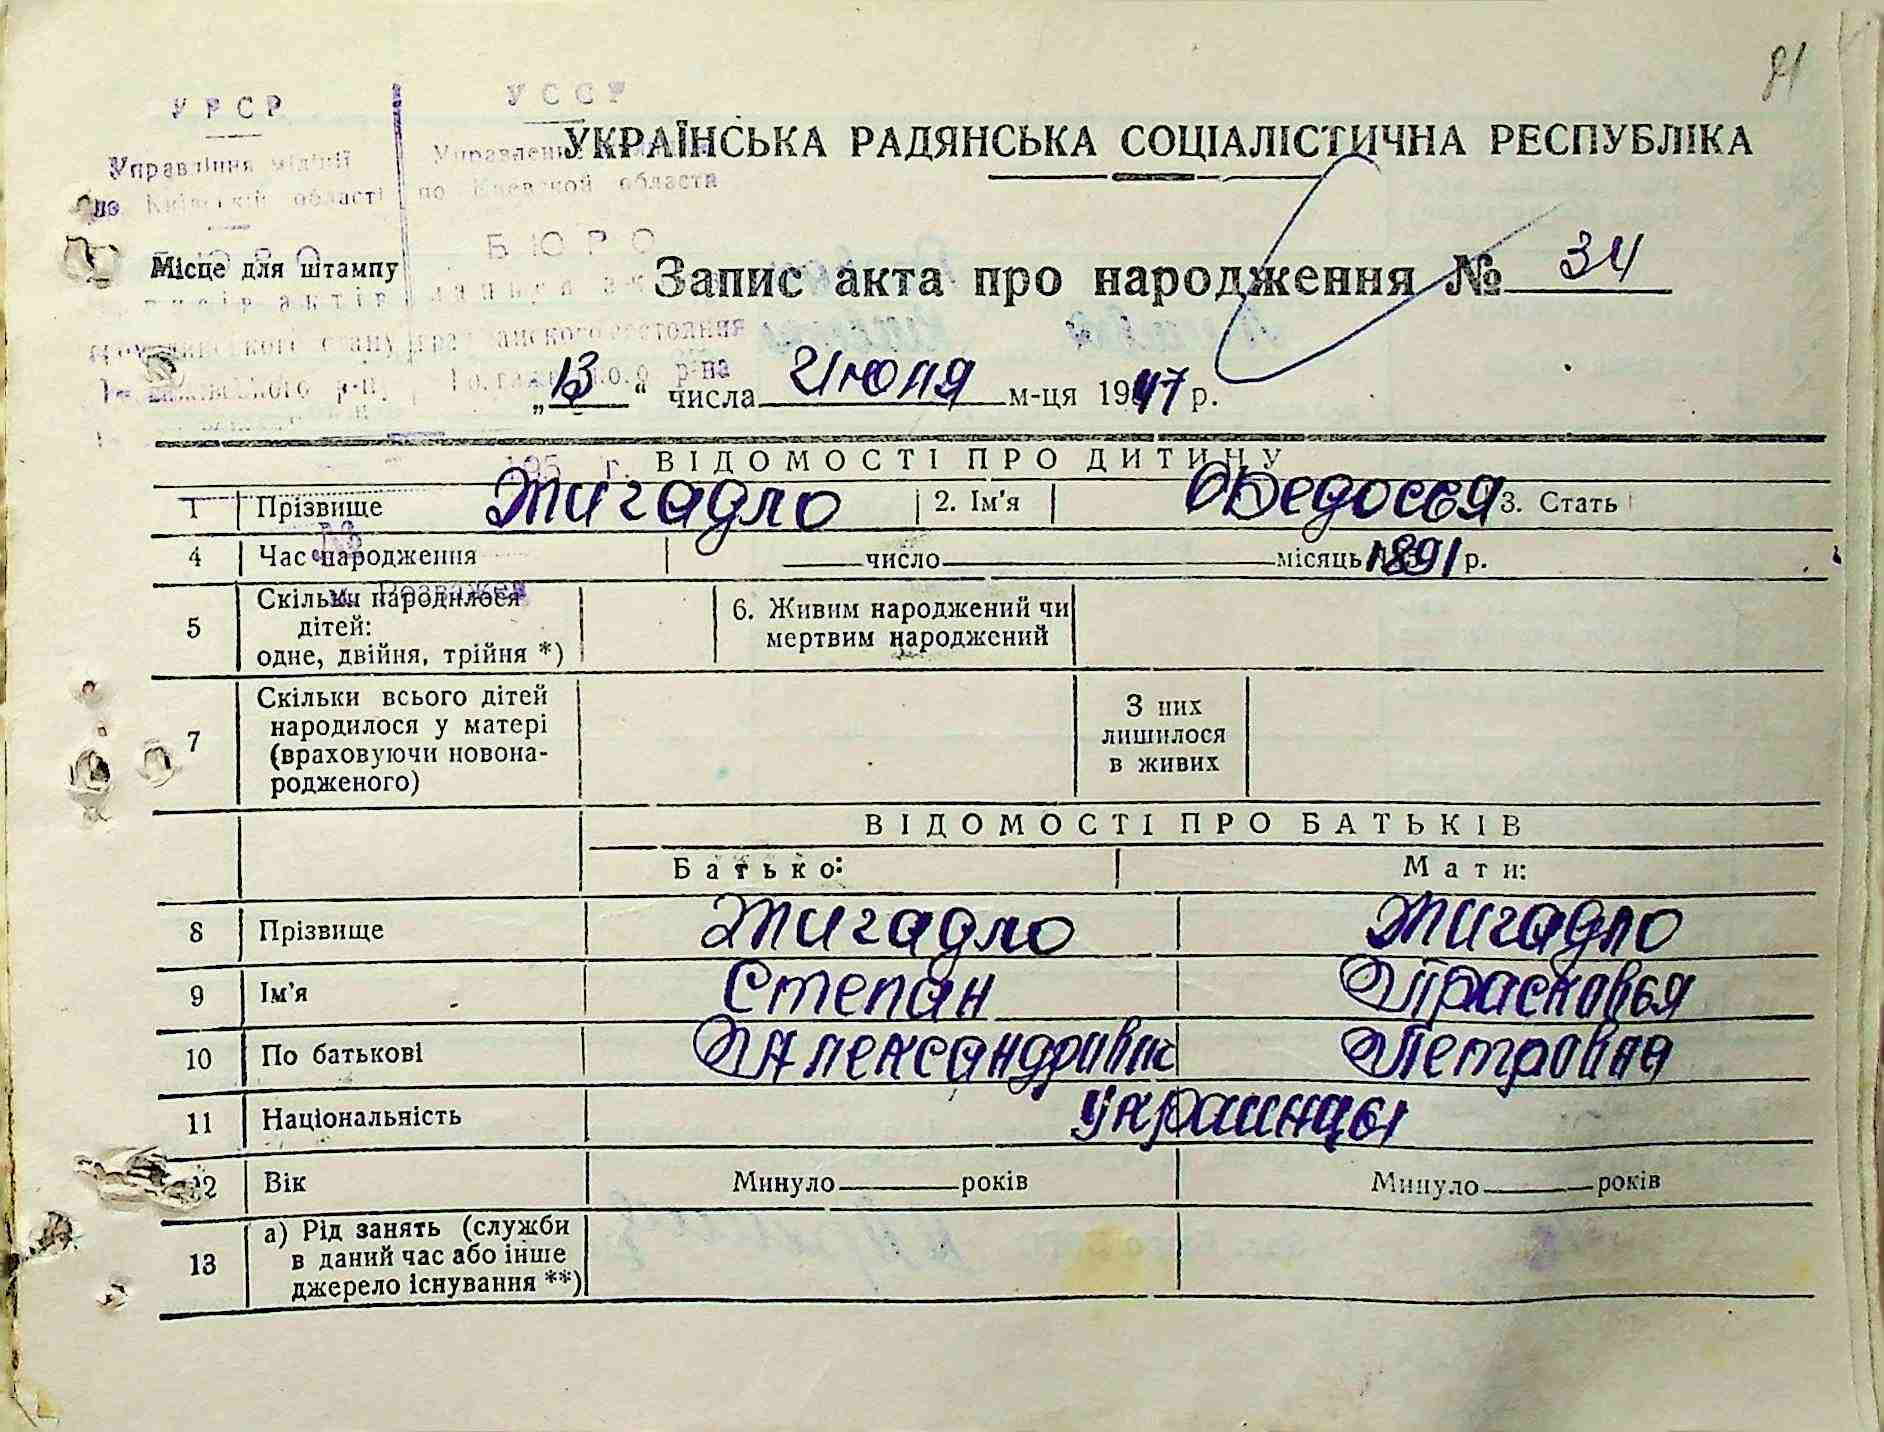 УРСР
УССР
81
УКРАЇНСЬКА РАДЯНСЬКА СОЦІАЛІСТИЧНА РЕСПУБЛІКА
Управління міліції
по Київській області
по Киевской области
БЮРО
Місце для штампу
Запис акта про народження № 34
гражданского состояния
„13“ числа Июля м-ця 1947 р.
195 г.
ВІДОМОСТІ ПРО ДИТИНУ
1 Прізвище Жигадло 2. Ім'я Федосья 3. Стать
4 Час народження число місяць 1891 р.
5 Скільки народилося
дітей:
одне, двійня, трійня *)
6. Живим народжений чи
мертвим народжений
7 Скільки всього дітей
народилося у матері
(враховуючи новона-
родженого)
З них
лишилося
в живих
ВІДОМОСТІ ПРО БАТЬКІВ
Батько: Мати:
8 Прізвище Жигадло Жигадло
9 Ім'я Степан Прасковья
10 По батькові Александривич Петровна
11 Національність Украинцы
12 Вік Минуло років Минуло років
13 а) Рід занять (служби
в даний час або інше
джерело існування **)